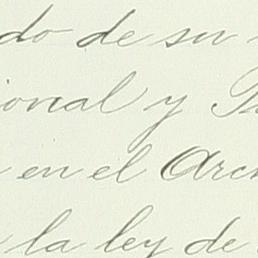 do de su
ional y
en el Arc
la ley de